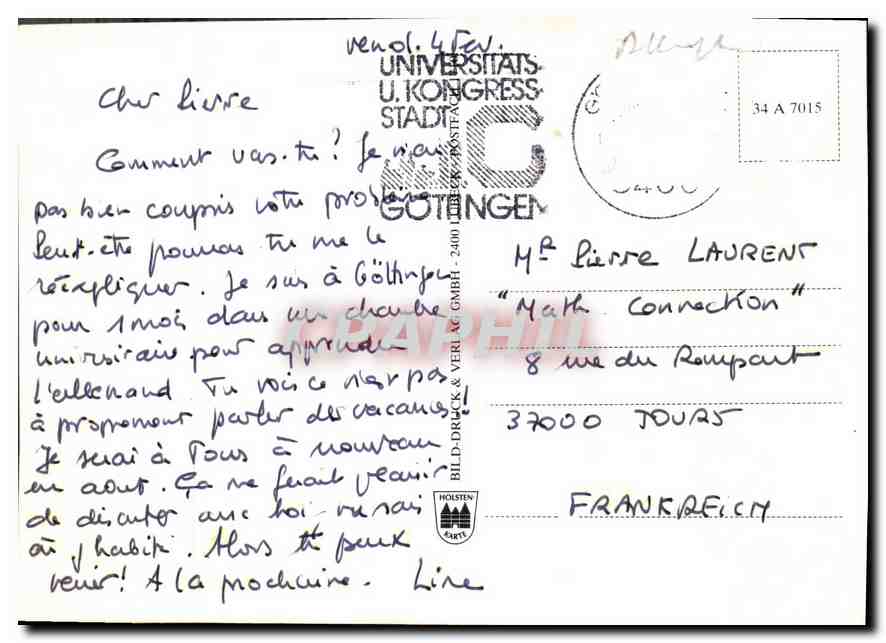 vend. 4 Fev.
Cher Pierre
Comment vas-tu? Je n'ai
pas bien compris votre problème
Peut-être pourras tu me le
réexpliquer. Je suis à Göttingen
pour 1 mois dans un chambre
universitaire pour apprendre
l'allemand. Tu vois ce n'est pas
à proprement parler des vacances!
Je serai à Tours à nouveau
en aout. Ça me ferait plaisir
de discuter avec toi. tu sais
où j'habite. Alors tu peux
venir! A la prochaine. Line
UNIVERSITÄTS
U. KONGRESS
STADT
GÖTTINGEN
BILD-DRUCK & VERLAG GMBH - 2400 LÜBECK - POSTFACH
HOLSTEN
KARTE
34 A 7015
Mr Pierre LAURENT
"Math Connection"
8 rue du Rempart
37000 TOURS
FRANKREICH
CPAPHIL